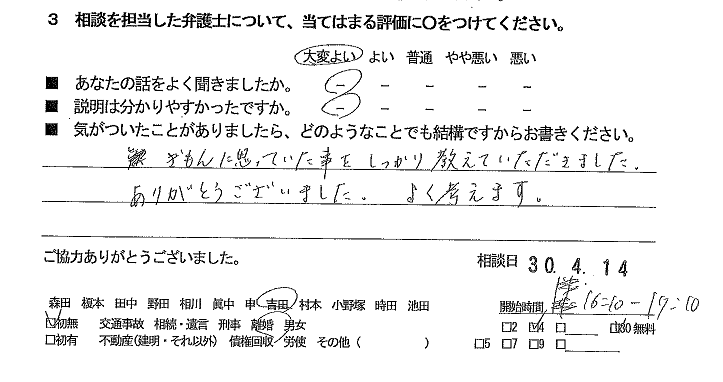 3 相談を担当した弁護士について、当てはまる評価に○をつけてください。
大変よい よい 普通 やや悪い 悪い
■ あなたの話をよく聞きましたか。 － － － － －
■ 説明は分かりやすかったですか。 － － － － －
■ 気がついたことがありましたら、どのようなことでも結構ですからお書きください。
ぎもんに思っていた事を しっかり教えていただきました。
ありがとうございました。 よく考えます。
ご協力ありがとうございました。
相談日 30. 4. 14
森田 榎本 田中 野田 相川 眞中 申 吉田 村本 小野塚 時田 池田
開始時間 16:10-17:10
☑初無 交通事故 相続・遺言 刑事 離婚 男女
□2 ☑4 □ □30無料
□初有 不動産(建明・それ以外) 債権回収 労使 その他( )
□5 □7 □9 □